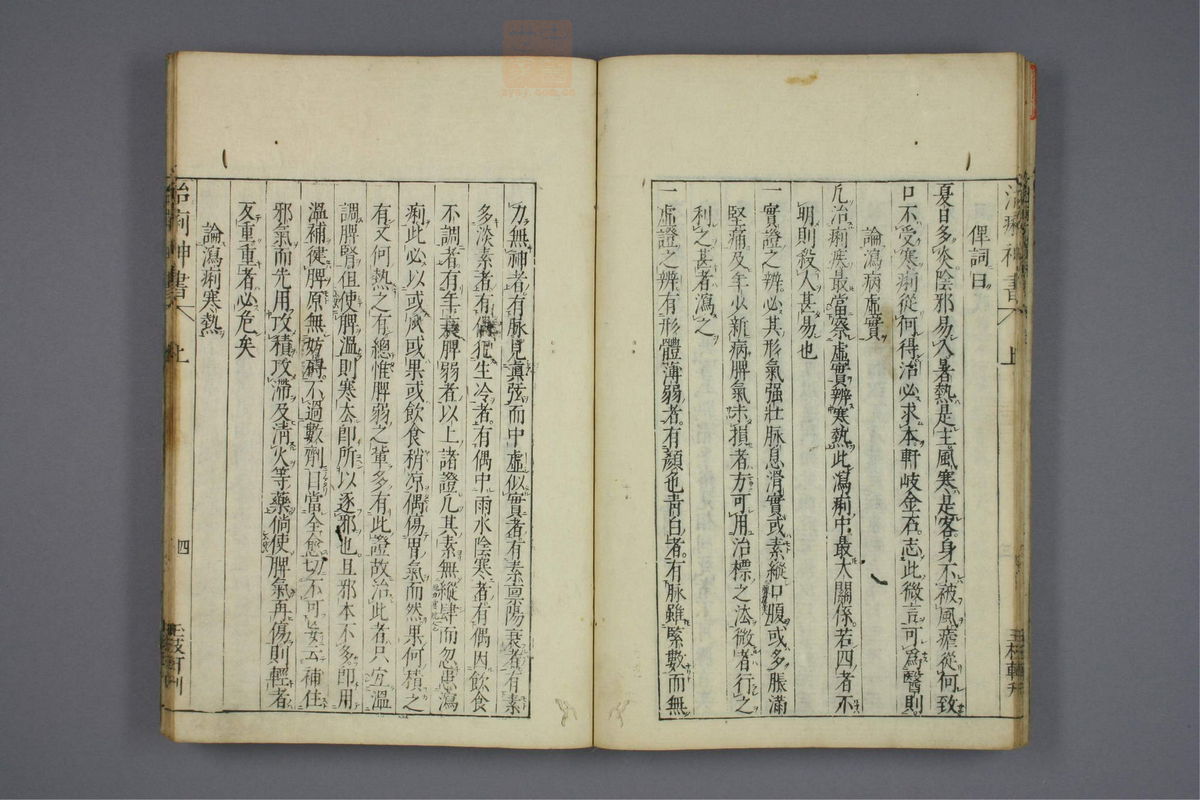 治痢神書 上
俾詞曰
夏日多奈陰邪易入暑熱是主風寒是客身不被風瘧從何致
口不受寒痢從何得治必求本軒岐金石志此微言可為醫則
論瀉痢虛實
凡治痢疾最當察虛實辨寒熱此瀉痢中最大關係若四者不
明則殺人甚易也
一實證之辨必其形氣强壯脉息滑實或素縱口腹或多脹滿
堅痛及年少新病脾氣未損者方可用治標之法微者行之
利之甚者瀉之
一虛證之辨有形體薄弱者有顏色青白者有脉雖緊數而無
力無神者有脉見真弦而中虛似實者有素稟陽衰者有素
多淡素者有偶犯生冷者有偶中雨水陰寒者有偶因飲食
不調者有年衰脾弱者以上諸證凡其素無縱肆而忽患瀉
痢此必以或風或果或飲食稍凉偶傷胃氣而然果何積之
有又何熱之有總惟脾弱之輩多有此證故治此者只宜溫
調脾腎但使脾溫則寒去即所以逐邪也且邪本不多即用
溫補徤脾原無妨碍不過數劑自當全愈切不可妄云補住
邪氣而先用攻積攻滯及淸火等藥倘使脾氣再傷則輕者
反重重者必危矣
論瀉痢寒熱
治痢神書 上 四